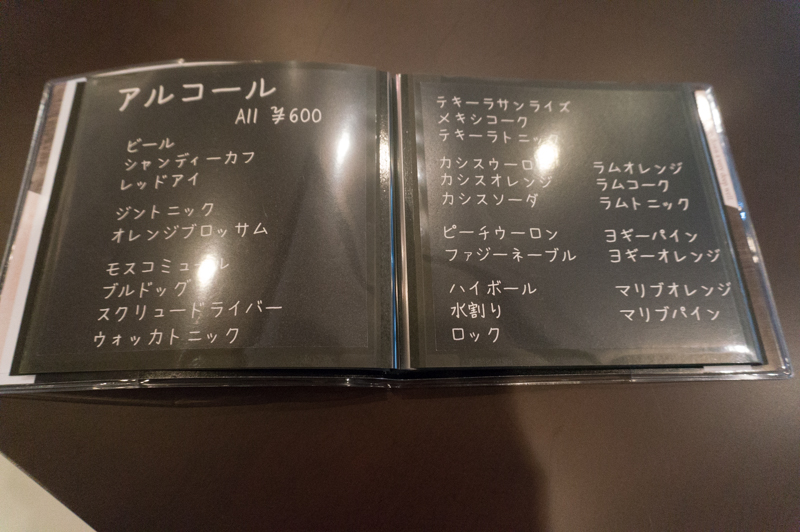 アルコール
All ¥600
ビール
シャンディーガフ
レッドアイ
ジントニック
オレンジブロッサム
ブルドッグ
スクリュードライバー
ウォッカトニック
テキーラサンライズ
メキシコーク
テキーラトニック
カシスオレンジ
カシスソーダ
ラムオレンジ
ラムコーク
ラムトニック
ピーチウーロン
ファジーネーブル
ヨギーパイン
ヨギーオレンジ
ハイボール
水割り
ロック
マリブオレンジ
マリブパイン